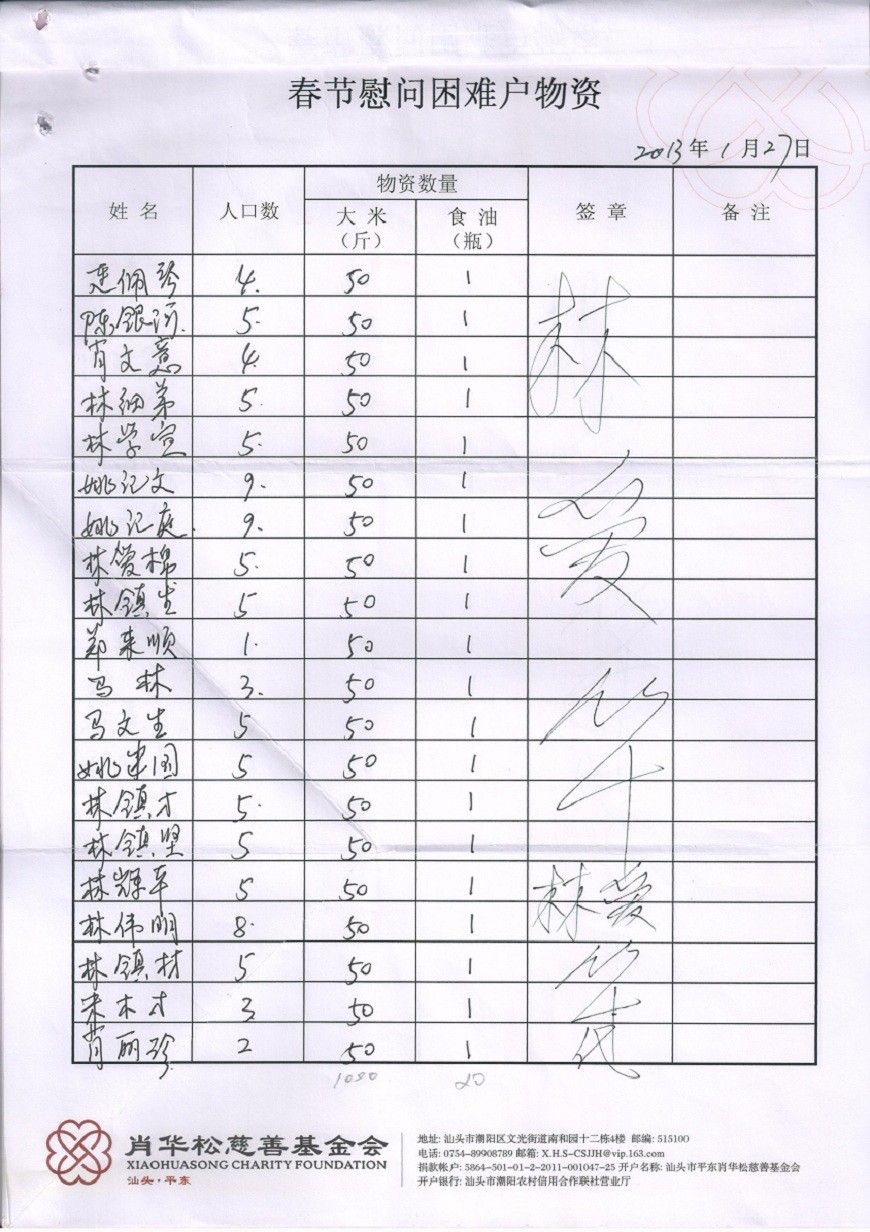 春节慰问困难户物资
2013年1月27日
姓名 人口数 物资数量 签章 备注
大米（斤） 食油（瓶）
佩琴 4. 50 1
陈银河. 5. 50 1
肖文意 4. 50 1
林细弟 5. 50 1
林学宣 5. 50 1
姚记文 9. 50 1
姚记庭. 9. 50 1
林爱棉 5. 50 1
林镇生 5 50 1
郑来顺 1. 50 1
马林 3. 50 1
马文生 5 50 1
姚建国 5 50 1
林镇才 5. 50 1
林镇坚 5 50 1
林辉平 5 50 1
林伟明 8. 50 1
林镇材 5 50 1
宋木才 3 50 1
肖丽珍 2 50 1
林爱
林爱
代
20
肖华松慈善基金会
XIAOHUASONG CHARITY FOUNDATION
汕头·平东
地址: 汕头市潮阳区文光街道南和园十二栋4楼 邮编: 515100
电话: 0754-89908789 邮箱: X.H.S-CSJJH@vip.163.com
捐款帐户: 5864-501-01-2-2011-001047-25 开户名称: 汕头市平东肖华松慈善基金会
开户银行: 汕头市潮阳农村信用合作联社营业厅